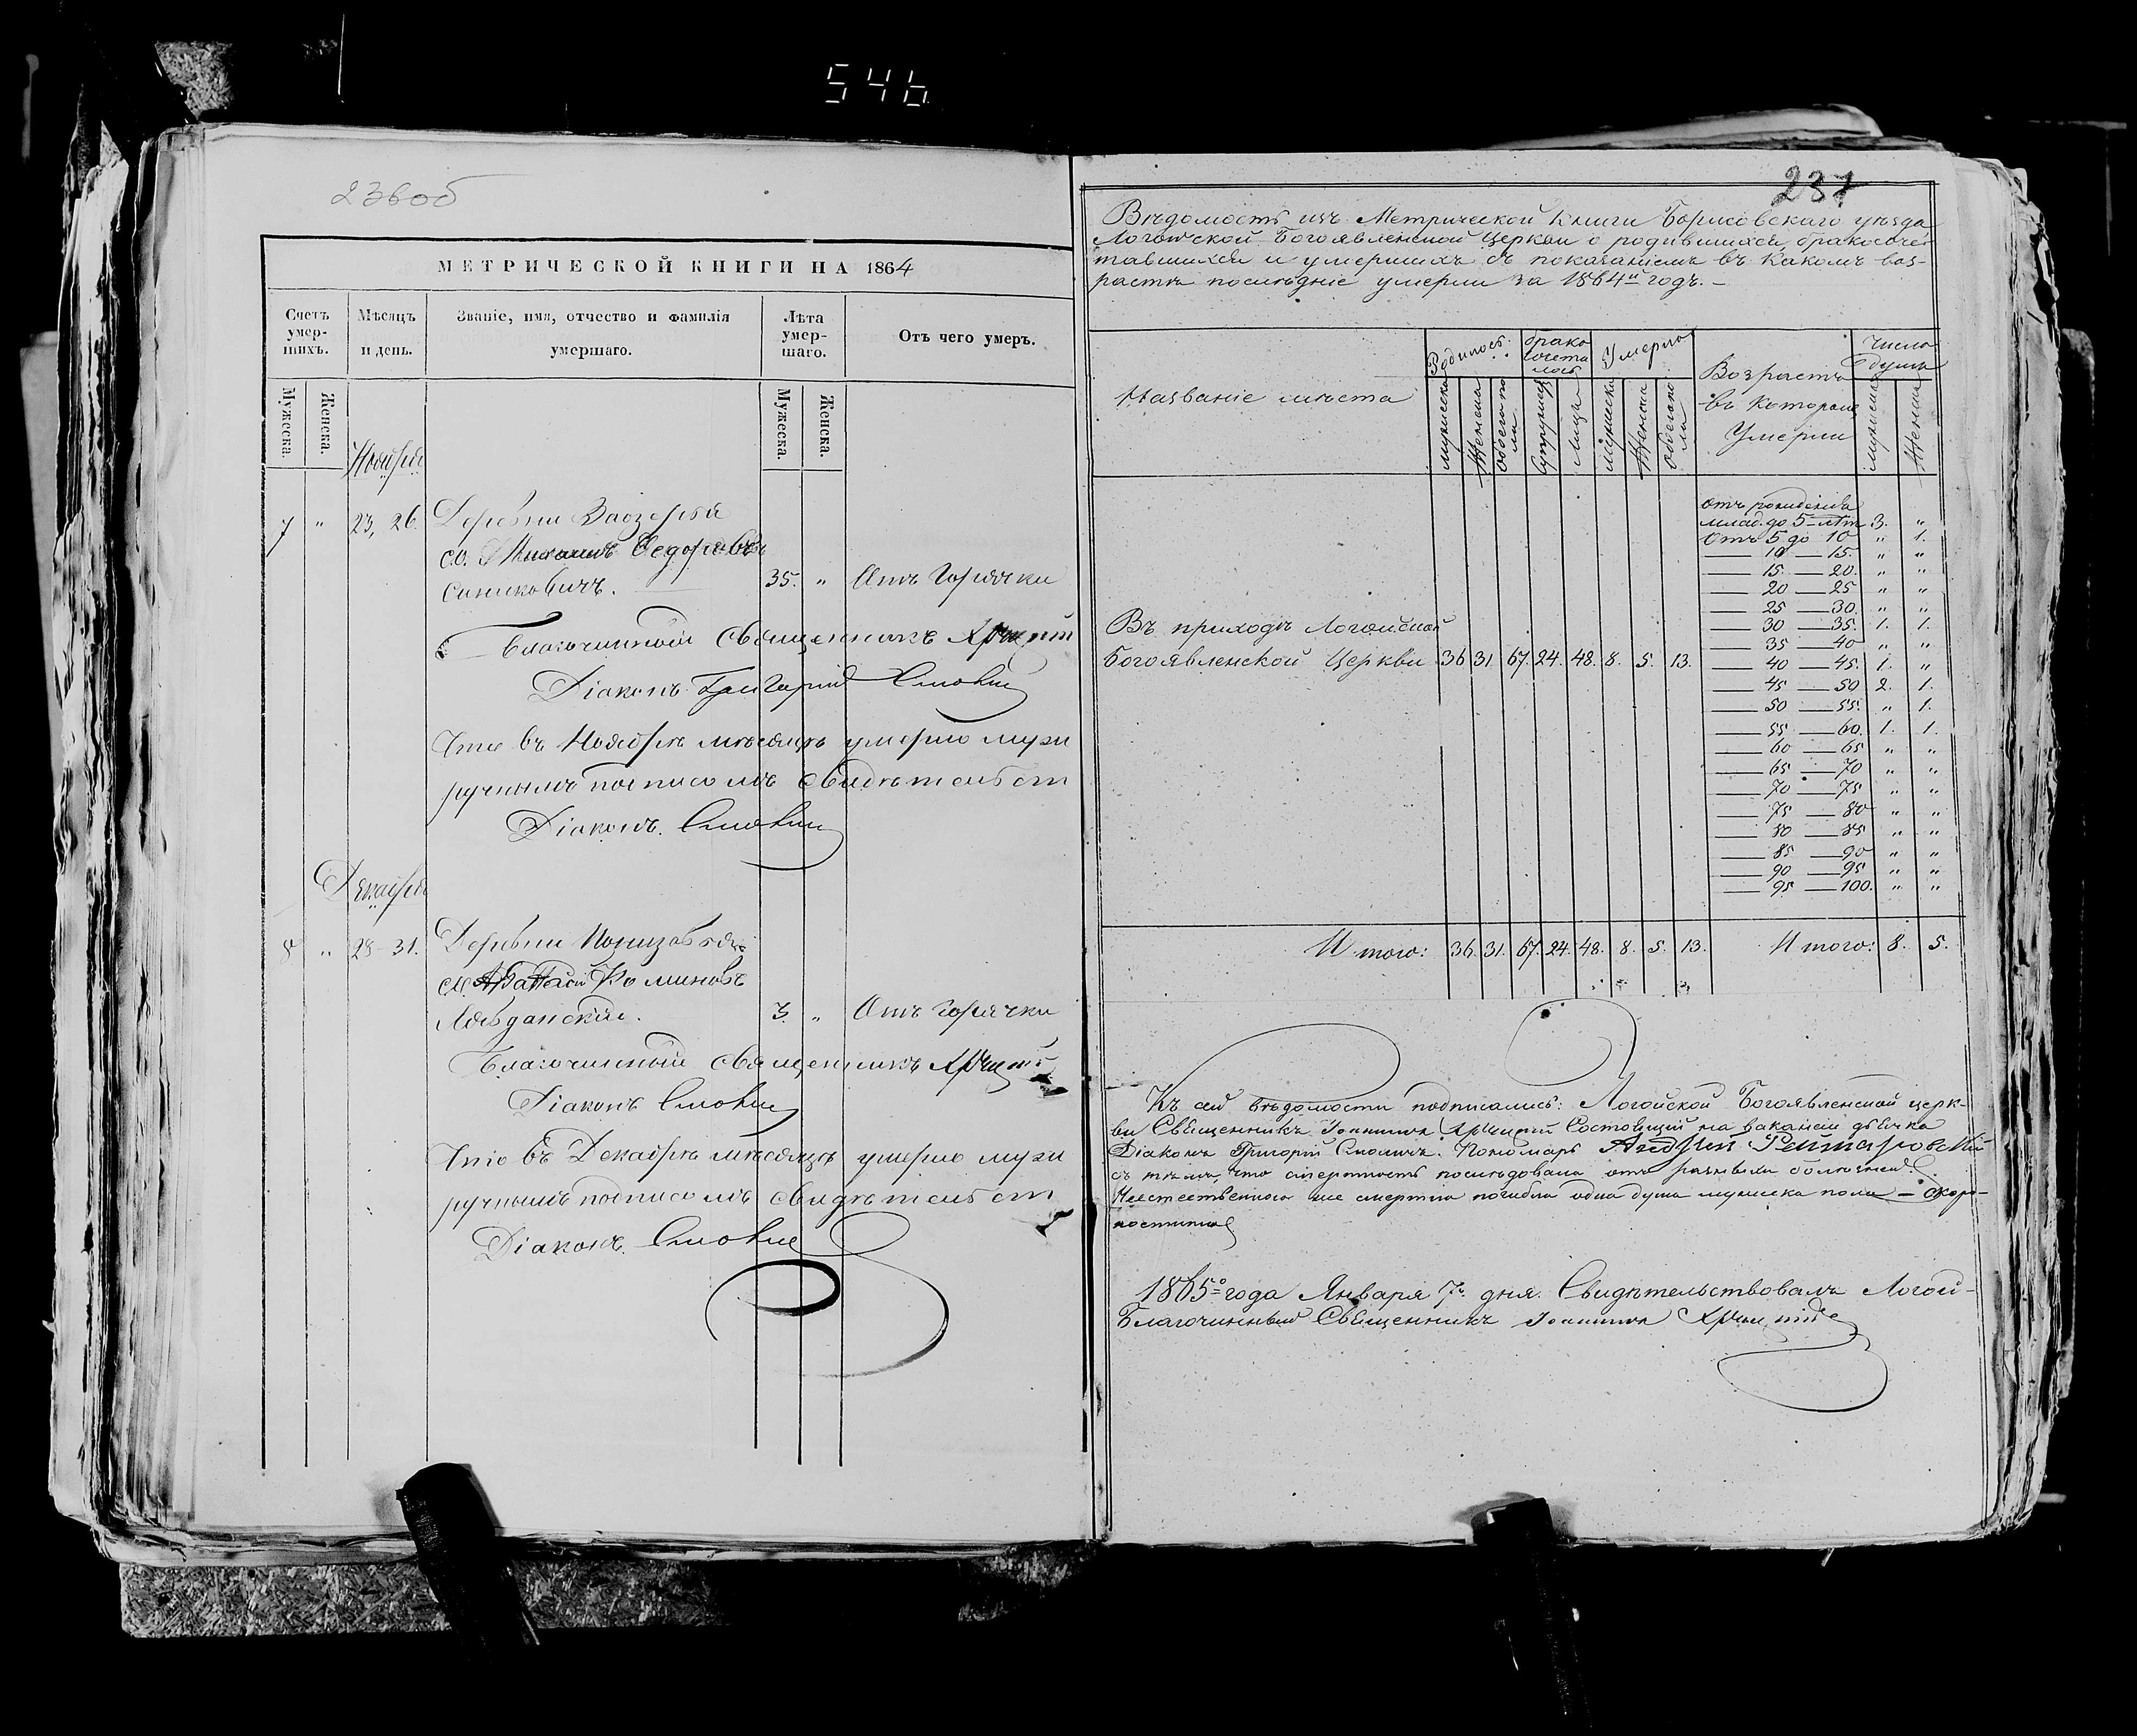 546
236об
МЕТРИЧЕСКОЙ КНИГИ НА 1864
Счетъ умер-шихъ.
Мѣсяцъ и день.
Званіе, имя, отчество и фамилія умершаго.
Лѣта умер-шаго.
Отъ чего умеръ.
Мужеска. Женска. Мужеска. Женска.
Ноября
7 " 23, 26. Деревни Заозерья
Михаилъ Ѳедоровъ
Синковичъ. 35. " Отъ горячки
Благочинный Священникъ
Діаконъ Григорій
Что въ Ноябрѣ мѣсяцѣ умерло
ручнымъ подписомъ свидѣтельст
Діаконъ.
Декабря
8 " 28–31. Деревни
Ѳоминовъ
3. " Отъ горячки
Благочинный священникъ
Діаконъ
Что въ Декабрѣ мѣсяцѣ умерло
ручнымъ подписомъ свидѣтельст
Діаконъ.
237
Вѣдомость изъ Метрической Книги Борисовскаго уѣзда
Логойской Богоявленской Церкви о родившихся, бракосоче-
тавшихся и умершихъ съ показаніемъ въ какомъ воз-
растѣ послѣдніе умерли за 1864й годъ.–
Названіе мѣста
Родилось.
брако сочета лось
Умерло
Возрастъ въ которомъ Умерли
Число душъ
мужеска Женска обоего по ла супружес Лицъ мужеска Женска обоего по ла мужеска Женска
отъ рожденія
млад. до 5-лѣт 3. "
Отъ 5 до 10 " 1.
10 — 15. " "
15 — 20. " "
20 — 25 " "
25 — 30. " "
30 — 35. 1. 1.
35 — 40 " "
40 — 45. 1. "
45 — 50 2. 1.
50 — 55. " 1.
55 — 60. 1. 1.
60 — 65 " "
65 — 70 " "
70 — 75 " "
75 — 80 " "
80 — 85 " "
85 — 90 " "
90 — 95 " "
95 — 100. " "
Въ приходѣ Логойской
Богоявленской Церкви 36 31. 67. 24. 48. 8. 5. 13.
Итого: 36. 31. 67. 24. 48. 8. 5. 13. Итого: 8. 5.
Къ сей вѣдомости подписались: Логойской Богоявленской церк-
ви Священникъ Іоаннъ Состоящій на ваканси дьячка
Діаконъ Григорій Пономарь Андрей
съ тѣмъ, что смертность послѣдовала отъ разныхъ болѣзней.
Неестественною же смертію погибла одна душа мужеска пола – скоро-
постижно
1865го года Января 7. дня. Свидѣтельствовалъ Логой-
Благочинный Священникъ Іоаннъ